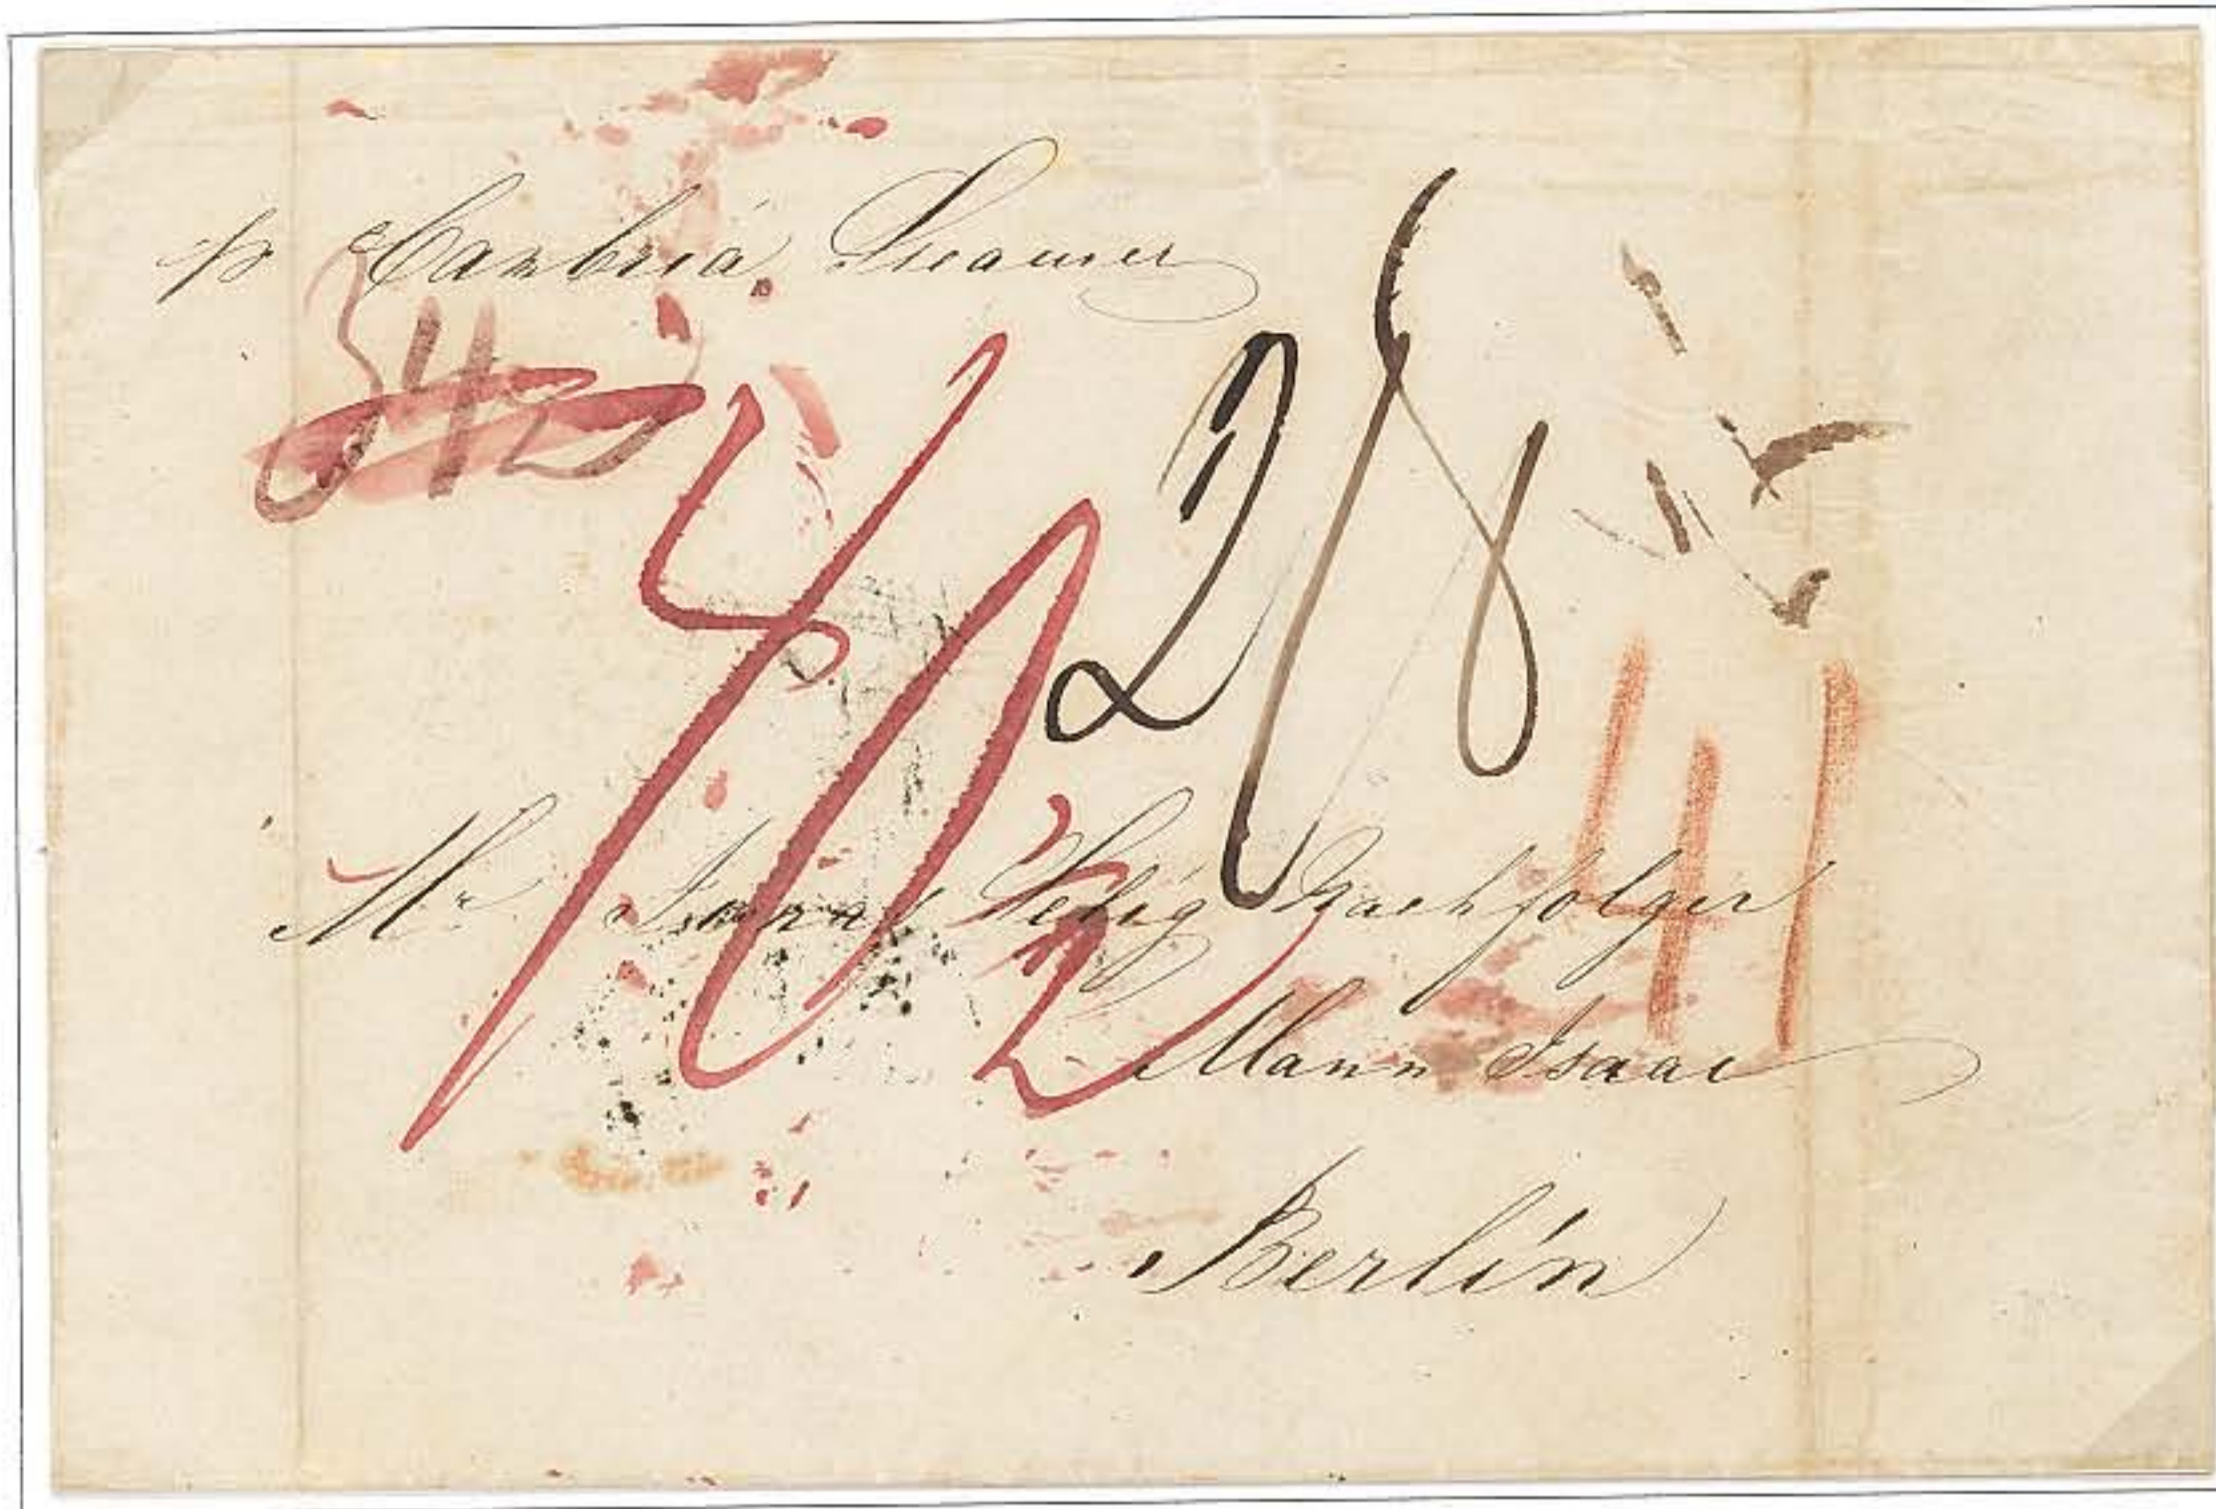 pr Cambria Steamer
2/8
40 1/2
41
Mr Israel Selig Nachfolger
Mann Isaac
Berlin